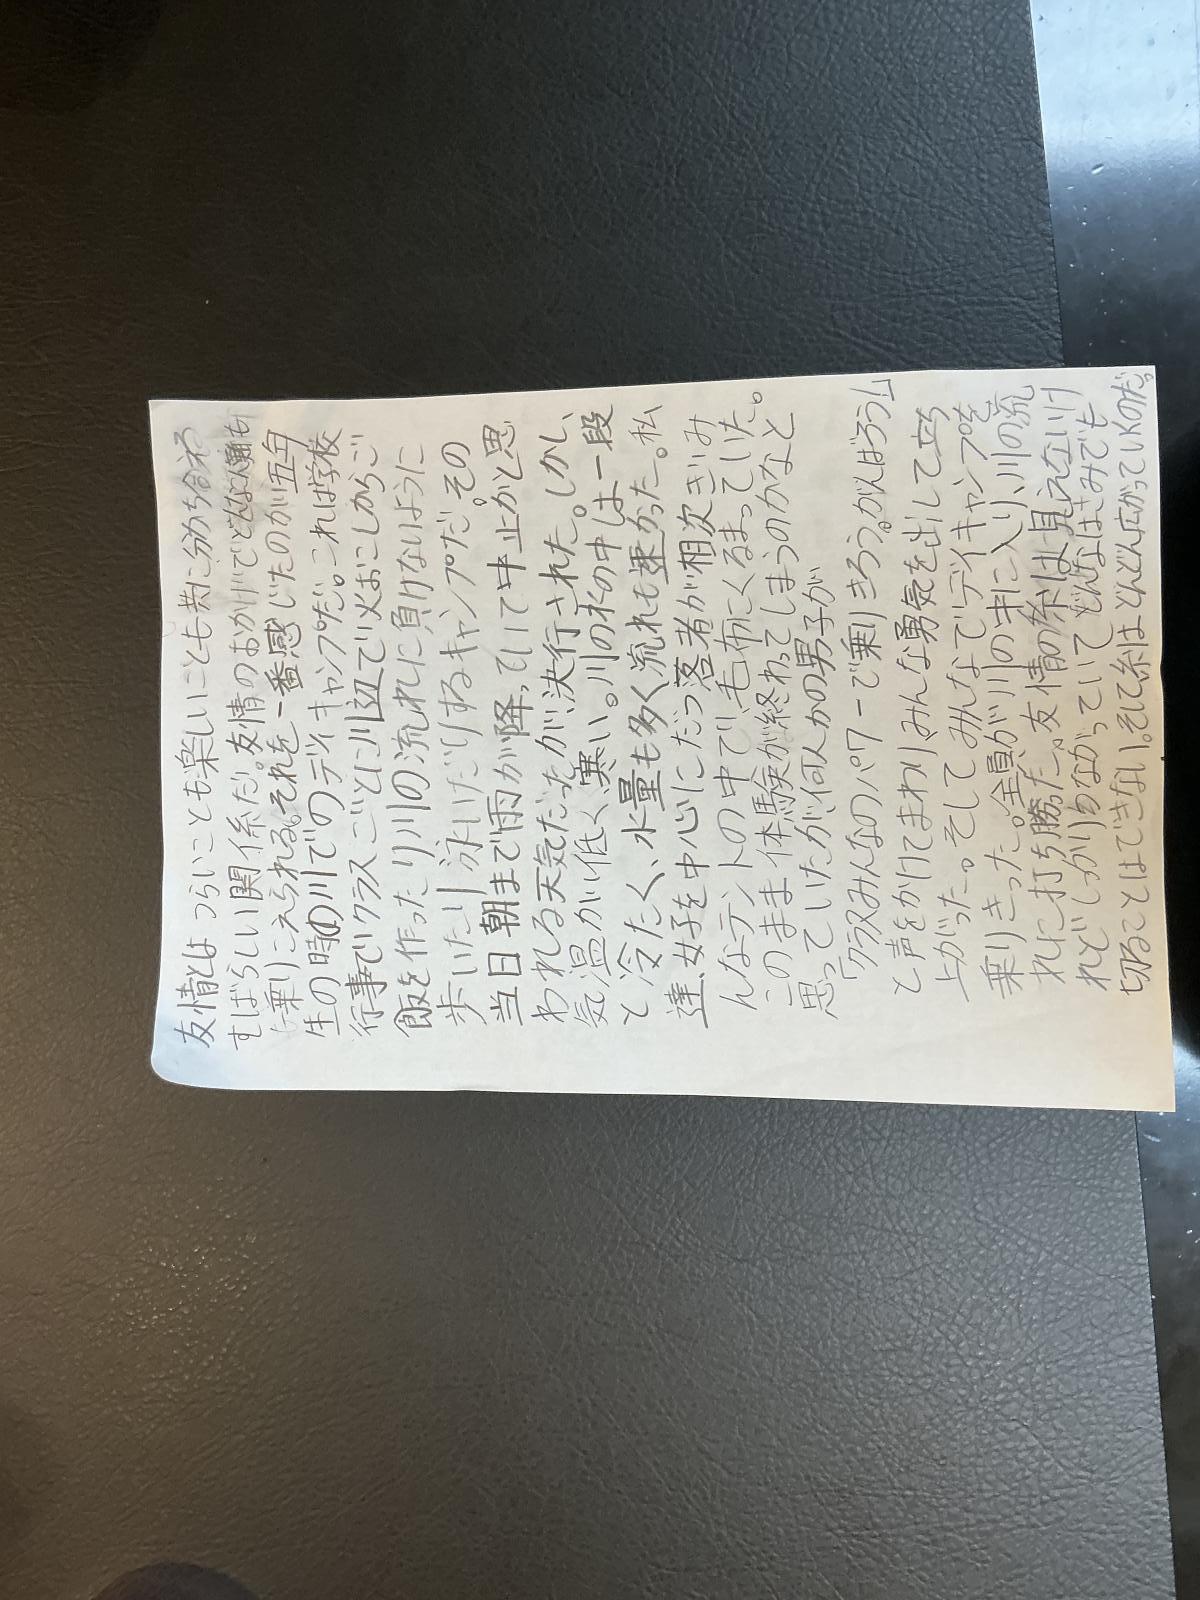 友情とはつらいことも楽しいことも共に分かち合える
すばらしい関係だ。友情のおかげでどんな
も乗りこえられる。それを一番感じたのが五年
生の時の川でのデイキャンプだ。これは学校
行事でクラスごとに川辺で火おこしからご
飯を作ったり川の流れに負けないように
歩いたり泳いだりするキャンプだ。その
当日朝まで雨が降っていて中止かと思
われる天気だったが決行された。しかし、
気温が低く、寒い。川の水の中は一段
と冷たく、水量も多く流れも速かった。私
達、女子を中心にだつ落者が相次ぎ、み
んなテントの中で、毛布にくるまっていた。
このまま体験が終わってしまうのかなと
思っていたが何人かの男子が
「クラスみんなのパワーで乗りきろう。がんばろう」
と声をかけてまわりみんな勇気を出して立ち
上がった。そしてみんなでデイキャンプを
乗りきった。全員が川の中に入り、川の流
れに打ち勝った。友情の糸は見えないけ
れどしっかりつながっていてどんなはさみでも
切ることはできない。そして糸はどんどん広がっていくのだ。